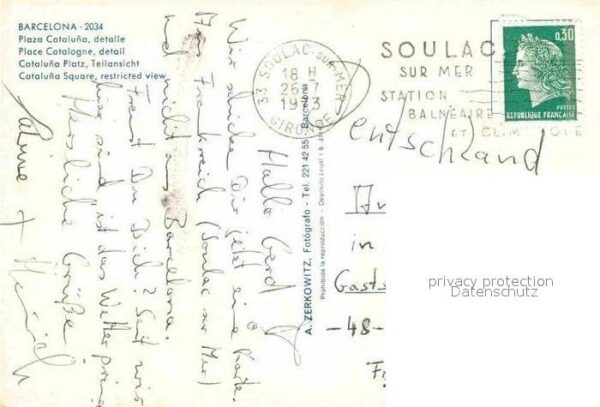 BARCELONA - 2034
Plaza Cataluña, detalle
Place Catalogne, detail
Cataluña Platz, Teilansicht
Cataluña Square, restricted view
Hallo Gerd!
Wir schicken Dir jetzt eine Karte
aus Frankreich (Soulac sur Mer)
und nicht aus Barcelona.
Freut Du Dich? Seit wir
hier sind ist das Wetter prima
Herzliche Grüße
+
A. ZERKOWITZ, Fotógrafo - Tel. 221 42 55 - Barcelona
Prohibida la reproducción - Depósito Legal
33 SOULAC-SUR-MER
18 H
26-7
1973
GIRONDE
SOULAC
SUR MER
STATION
BALNÉAIRE
ET CLIMATIQUE
0,30
POSTES
REPUBLIQUE FRANÇAISE
entschland
in
Gasts
-48-
privacy protection
Datenschutz